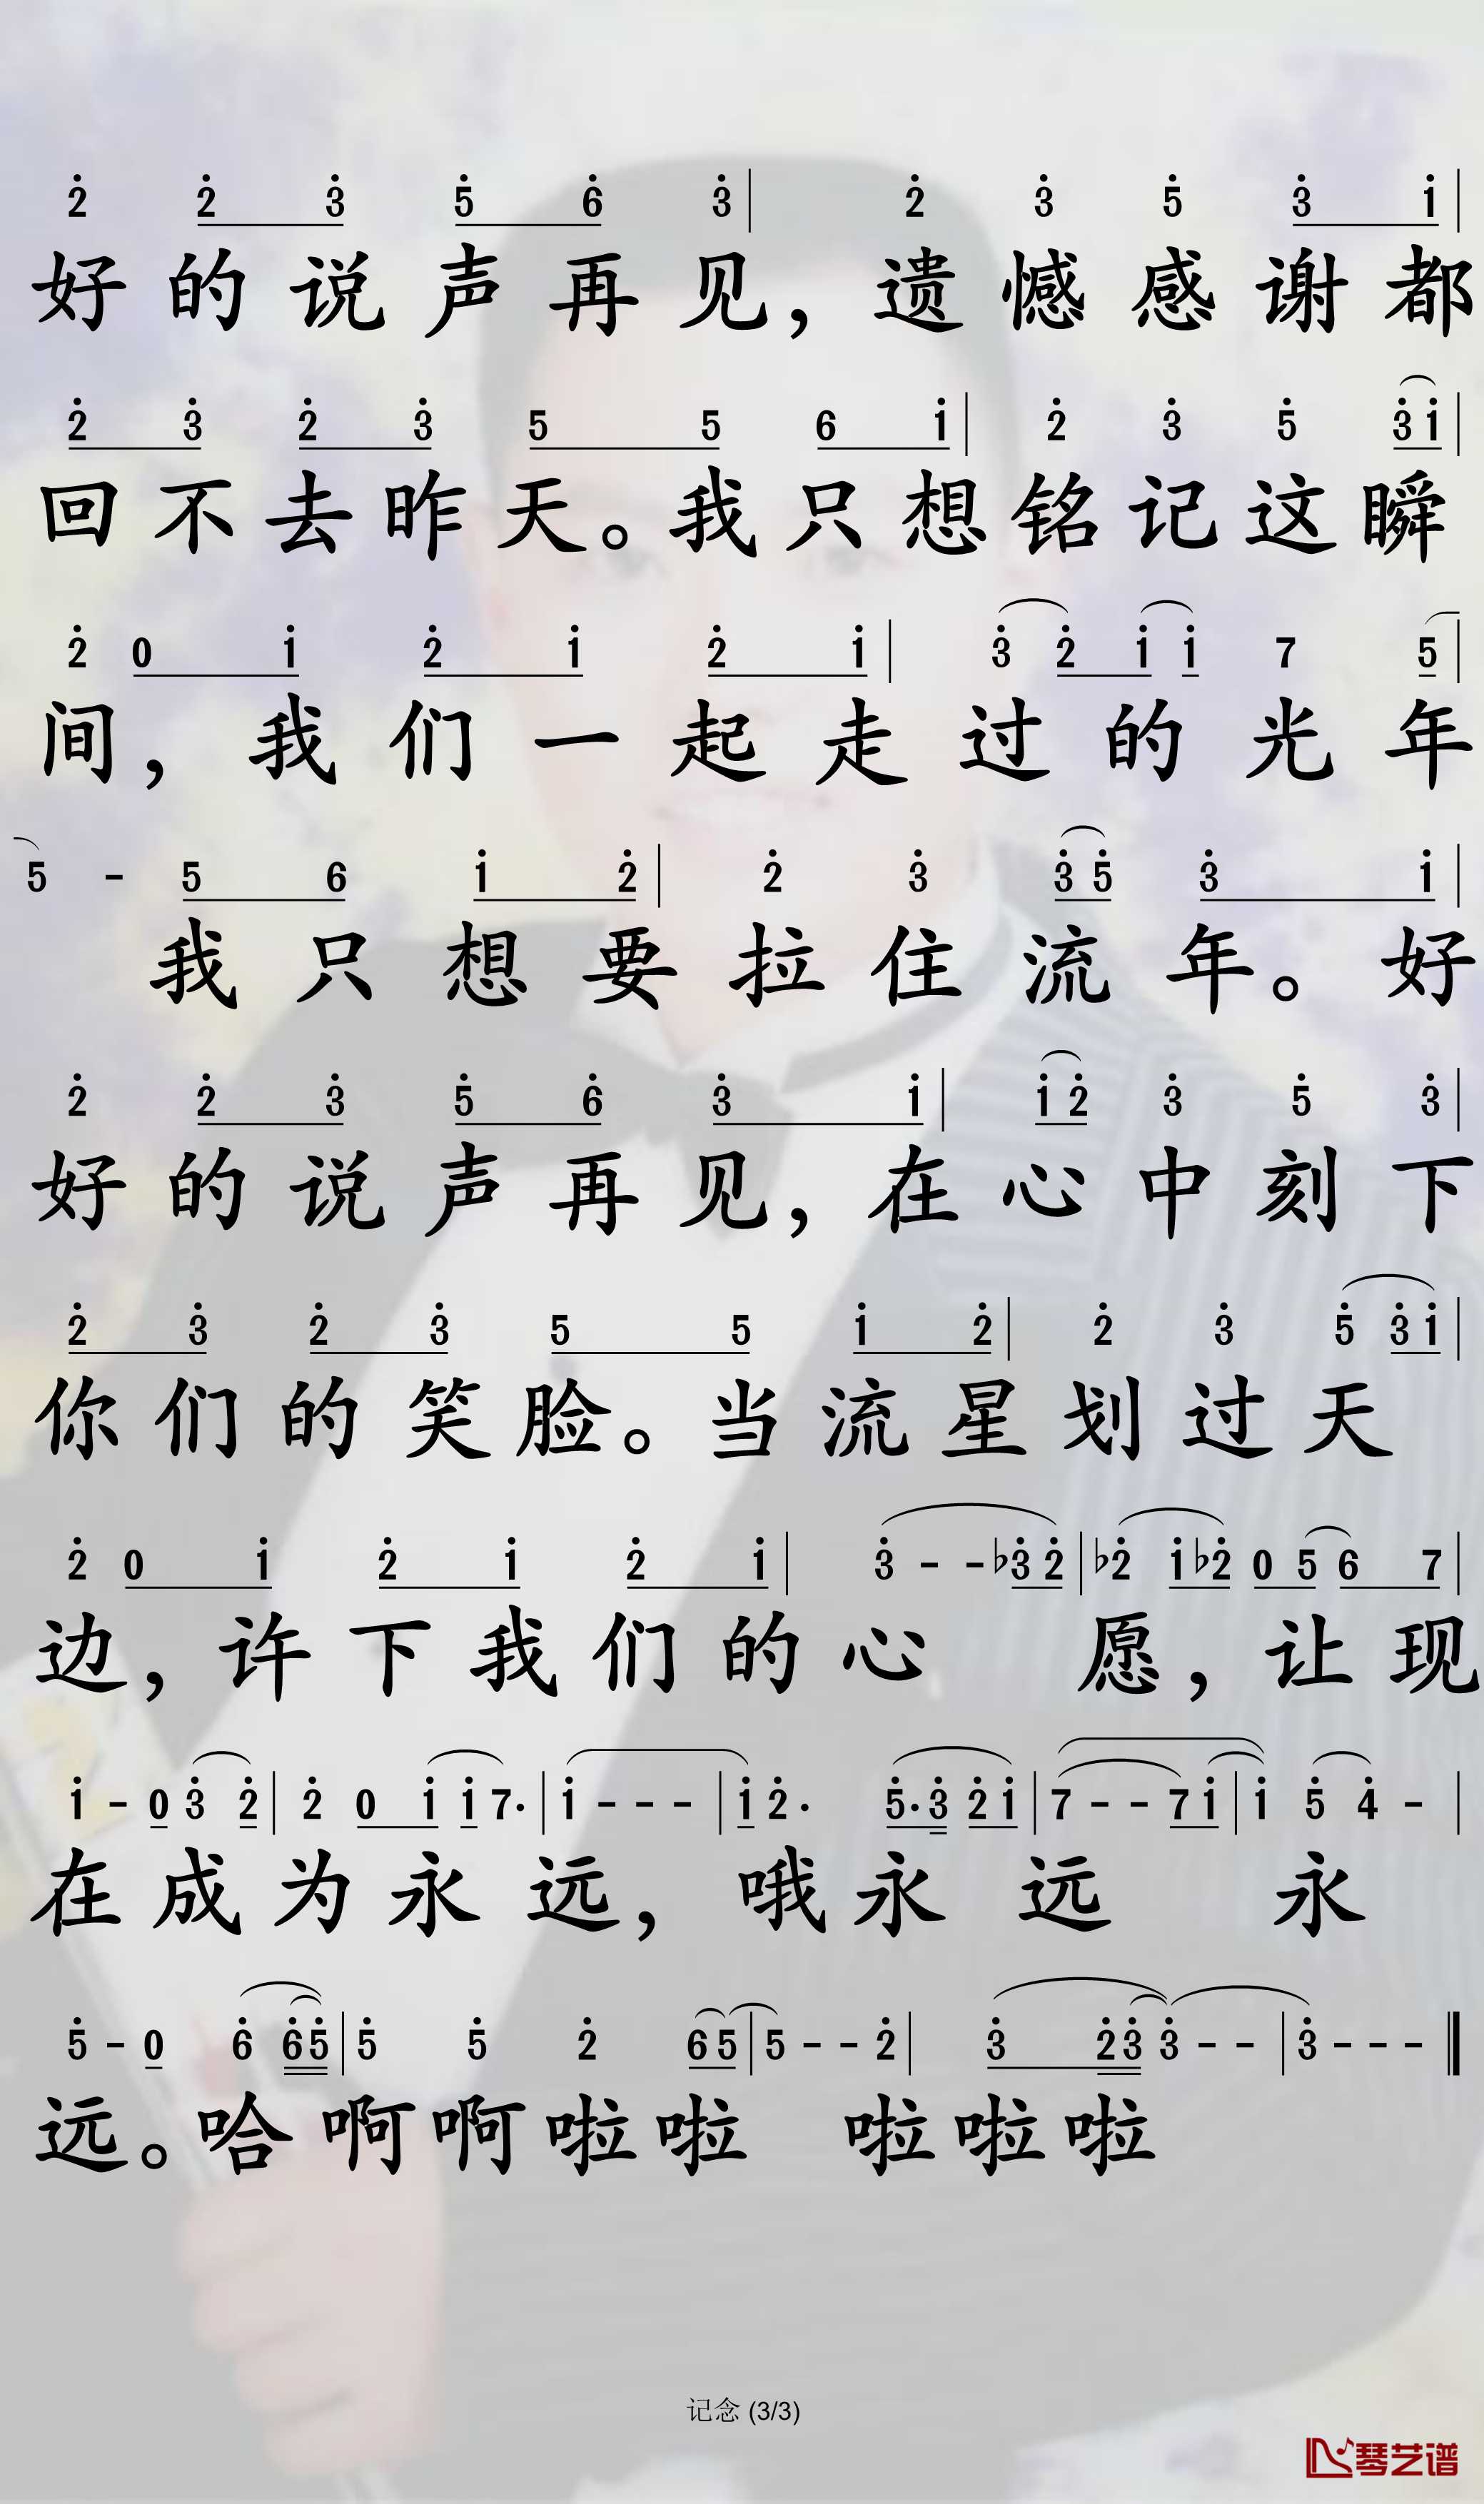 2̇ 2̇ 3̇ 5̇ 6̇ 3̇ | 2̇ 3̇ 5̇ 3̇ 1̇ |
好的说声再见，遗憾感谢都
2̇ 3̇ 2̇ 3̇ 5 5 6 1̇ | 2̇ 3̇ 5̇ 3̇ 1̇ |
回不去昨天。我只想铭记这瞬
2̇ 0 1̇ 2̇ 1̇ 2̇ 1̇ | 3̇ 2̇ 1̇ 1̇ 7 5 |
间，我们一起走过的光年
5 - 5 6 1̇ 2̇ | 2̇ 3̇ 3̇ 5̇ 3̇ 1̇ |
我只想要拉住流年。好
2̇ 2̇ 3̇ 5̇ 6̇ 3̇ 1̇ | 1̇ 2̇ 3̇ 5̇ 3̇ |
好的说声再见，在心中刻下
2̇ 3̇ 2̇ 3̇ 5 5 1̇ 2̇ | 2̇ 3̇ 5̇ 3̇ 1̇ |
你们的笑脸。当流星划过天
2̇ 0 1̇ 2̇ 1̇ 2̇ 1̇ | 3̇ - - ♭3̇ 2̇ | ♭2̇ 1̇ ♭2̇ 0 5 6 7 |
边，许下我们的心 愿，让现
1̇ - 0 3̇ 2̇ | 2̇ 0 1̇ 1̇ 7· | 1̇ - - - | 1̇ 2̇· 5̇· 3̇ 2̇ 1̇ | 7 - - 7 1̇ | 1̇ 5̇ 4̇ - |
在成为永远，哦永远 永
5̇ - 0 6̇ 6̇ 5̇ | 5̇ 5̇ 2̇ 6 5 | 5 - - 2̇ | 3̇ 2̇ 3̇ 3̇ - - | 3̇ - - - ‖
远。哈啊啊啦啦 啦啦啦
记念 (3/3)
琴艺谱